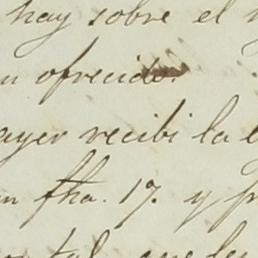 hay sobre el
n ofrecido.
ayer recibi la
n fha. 17. y
tal